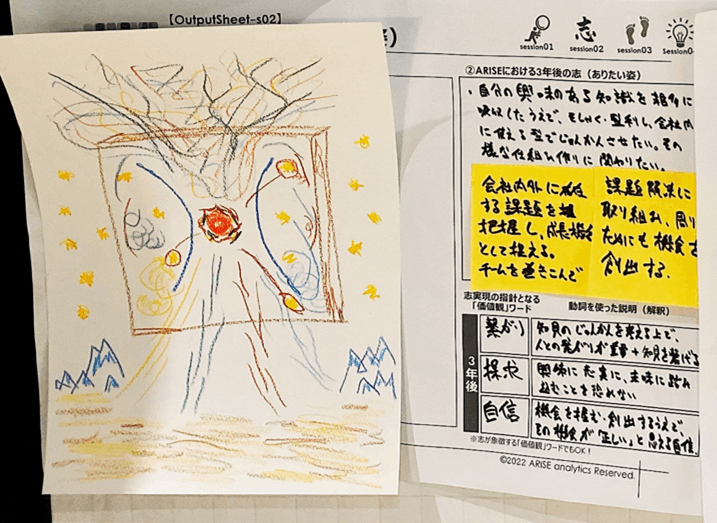 【OutputSheet-s02】
session01
志
session02
session03
②ARISEにおける3年後の志（ありたい姿）
・自分の興味のある知識を
吸収したうえで、もしゃく・整利し、会社内
に使える型でじゅんかんさせたい。その
様な仕組み作りに関わりたい。
会社内外に
する課題を
把握し、成長機会
として捉える。
チームを巻きこんで
課題解決に
取り組み、周り
ためにも機会を
創出する。
志実現の指針となる
「価値観」ワード
動詞を使った説明（解釈）
3年後
繋がり
知見のじゅんかんを考える上で、
人との繋がりが重要+知見を繋げる
探究
興味に忠実に、
ことを恐れない
自信
機会を掴む、創出するうえで、
その機会が「正しい」と思える自信
※志が象徴する「価値観」ワードでもOK！
©2022 ARISE analytics Reserved.